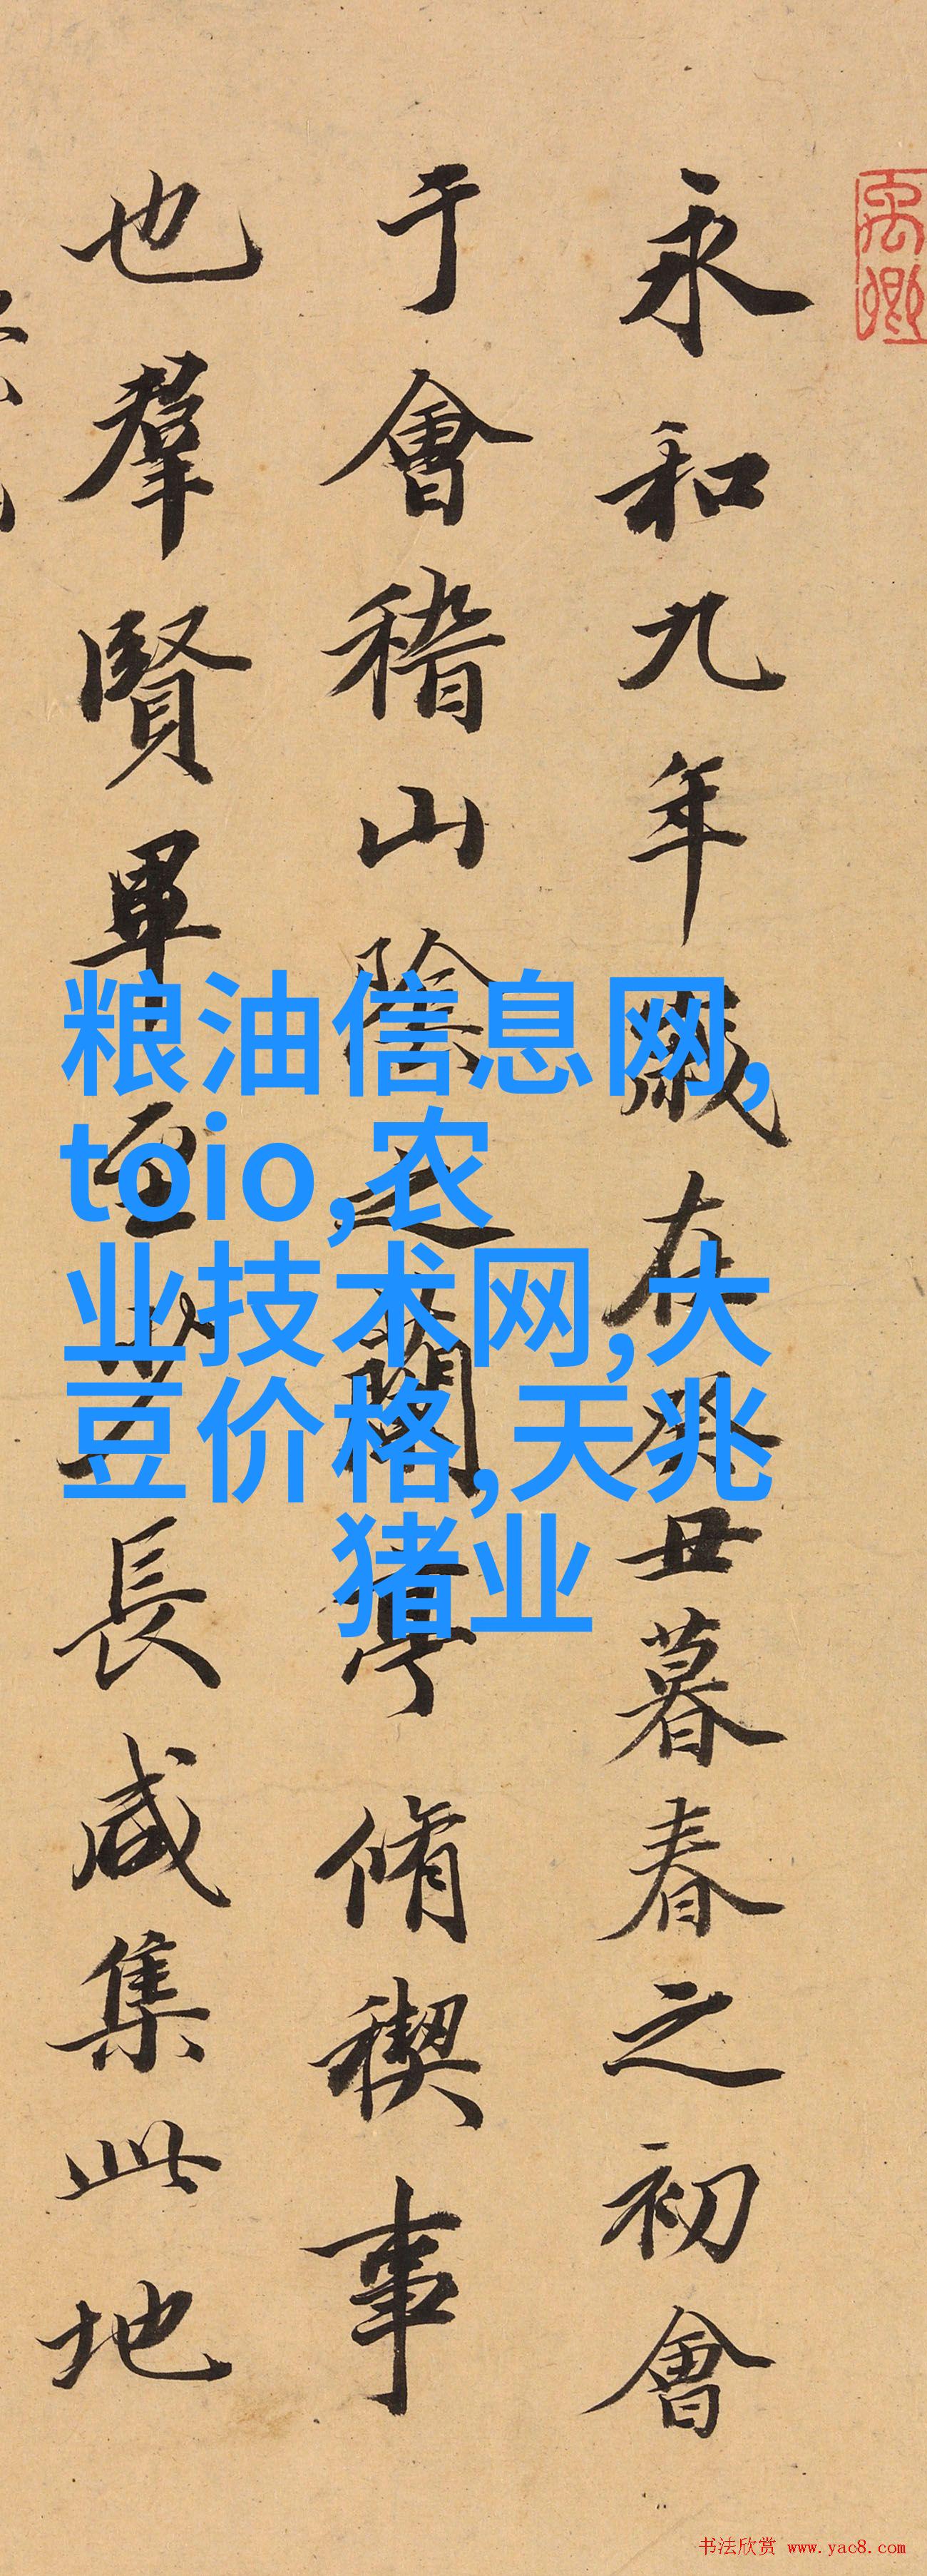 禹卿
永和九年歲在癸丑暮春之初會
于會稽山陰之蘭亭脩稧事
也羣賢畢至少長咸集此地
粮油信息网,
toio,农
业技术网,大
豆价格,天兆
猪业
书法欣赏 www.yac8.com